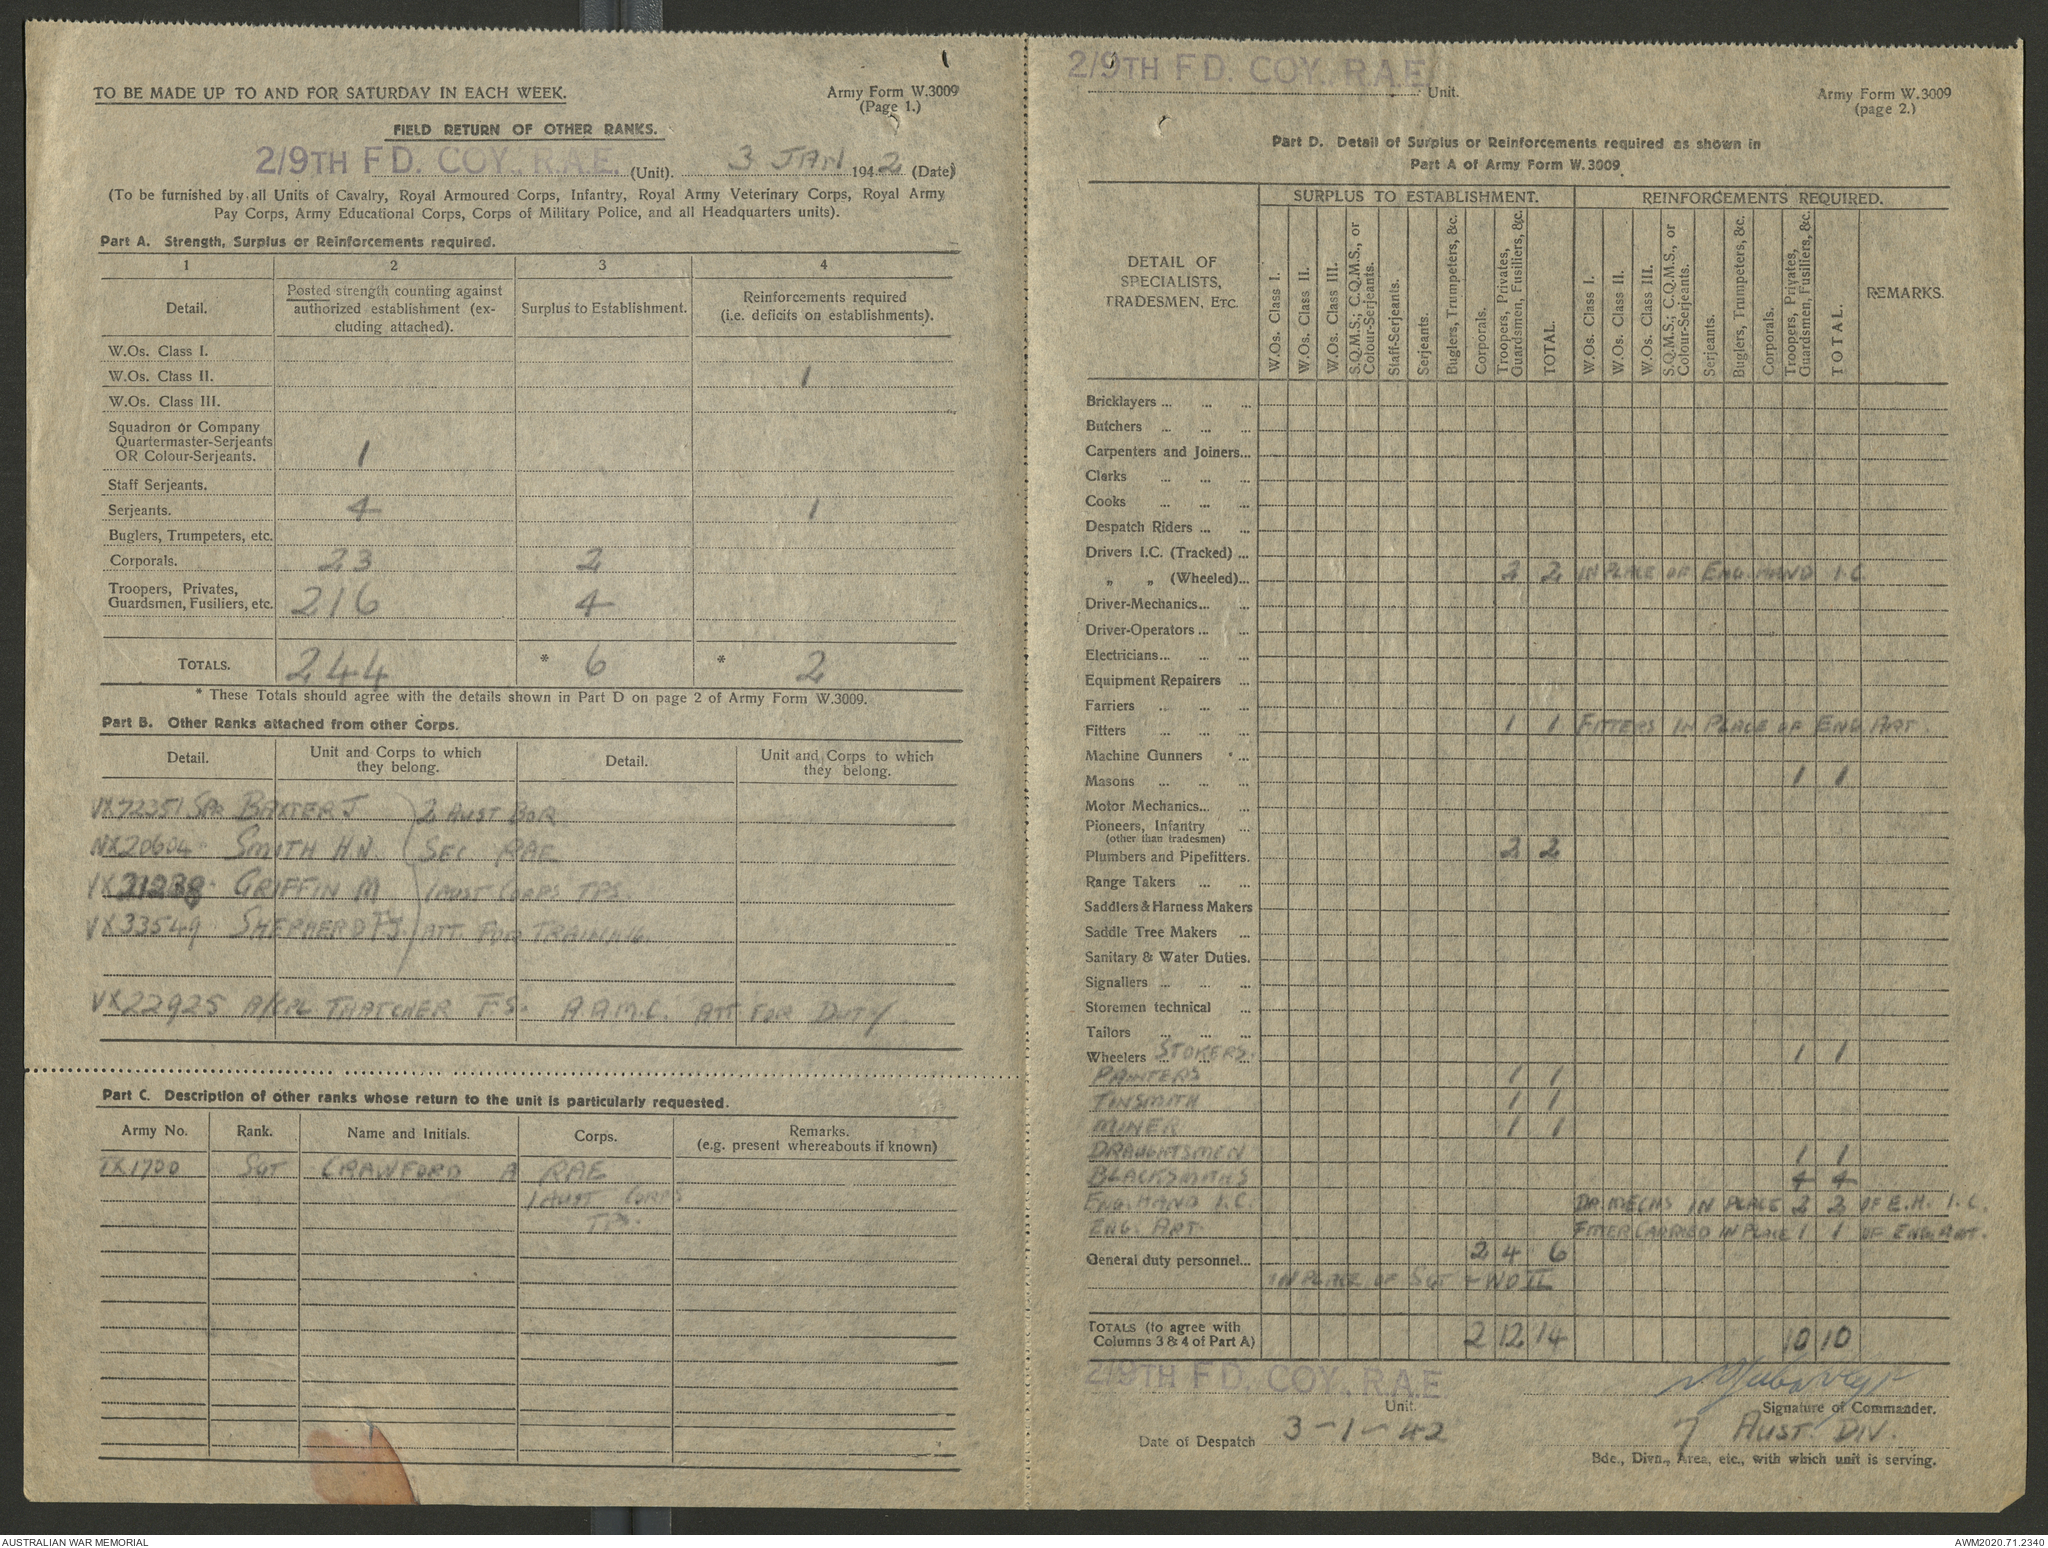 TO BE MADE UP TO AND FOR SATURDAY IN EACH WEEK.
Army Form W.3009
(Page 1.)
FIELD RETURN OF OTHER RANKS.
2/9TH FD. COY., R.A.E. (Unit). 3 JAN 1942 (Date)
(To be furnished by all Units of Cavalry, Royal Armoured Corps, Infantry, Royal Army Veterinary Corps, Royal Army
Pay Corps, Army Educational Corps, Corps of Military Police, and all Headquarters units).
Part A. Strength, Surplus or Reinforcements required.
1 2 3 4
Detail.
Posted strength counting against
authorized establishment (ex-
cluding attached).
Surplus to Establishment.
Reinforcements required
(i.e. deficits on establishments).
W.Os. Class I.
W.Os. Class II. 1
W.Os. Class III.
Squadron or Company
Quartermaster-Serjeants
OR Colour-Serjeants. 1
Staff Serjeants.
Serjeants. 4 1
Buglers, Trumpeters, etc.
Corporals. 23 2
Troopers, Privates,
Guardsmen, Fusiliers, etc. 216 4
TOTALS. 244 * 6 * 2
* These Totals should agree with the details shown in Part D on page 2 of Army Form W.3009.
Part B. Other Ranks attached from other Corps.
Detail.
Unit and Corps to which
they belong.
Detail.
Unit and Corps to which
they belong.
VX72351 SPR BAXTER J 2 AUST BOR
NX20604 SMITH H.N. SEC RAE
GRIFFIN M 1 AUST CORPS TPS.
VX33549 SHEPHERD F.J. ATT. FOR TRAINING.
VX22925 A/CPL THATCHER F.S. A.A.M.C. ATT. FOR DUTY
Part C. Description of other ranks whose return to the unit is particularly requested.
Army No. Rank. Name and Initials. Corps. Remarks.
(e.g. present whereabouts if known)
TX1700 SGT CRAWFORD A RAE
1 AUST CORPS
TPS.
2/9TH FD. COY. R.A.E.
Unit.
Army Form W.3009
(page 2.)
Part D. Detail of Surplus or Reinforcements required as shown in
Part A of Army Form W.3009
DETAIL OF
SPECIALISTS,
TRADESMEN, ETC.
SURPLUS TO ESTABLISHMENT.
W.Os. Class I.
W.Os. Class II.
W.Os. Class III.
S.Q.M.S.; C.Q.M.S., or
Colour-Serjeants.
Staff-Serjeants.
Serjeants.
Buglers, Trumpeters, &c.
Corporals.
Troopers, Privates,
Guardsmen, Fusiliers, &c.
TOTAL.
REINFORCEMENTS REQUIRED.
W.Os. Class I.
W.Os. Class II.
W.Os. Class III.
S.Q.M.S.; C.Q.M.S., or
Colour-Serjeants.
Serjeants.
Buglers, Trumpeters, &c.
Corporals.
Troopers, Privates,
Guardsmen, Fusiliers, &c.
TOTAL.
REMARKS.
Bricklayers ... ... ...
Butchers ... ... ...
Carpenters and Joiners...
Clerks ... ... ...
Cooks ... ... ...
Despatch Riders ... ...
Drivers I.C. (Tracked) ...
" " (Wheeled)... 2 2 IN PLACE OF ENG. HAND I.C.
Driver-Mechanics... ...
Driver-Operators ... ...
Electricians... ... ...
Equipment Repairers ...
Farriers ... ... ...
Fitters ... ... ... 1 1 FITTERS IN PLACE OF ENG ART.
Machine Gunners ...
Masons ... ... ... 1 1
Motor Mechanics... ...
Pioneers, Infantry ...
(other than tradesmen)
Plumbers and Pipefitters. 2 2
Range Takers ... ...
Saddlers & Harness Makers
Saddle Tree Makers ...
Sanitary & Water Duties.
Signallers ... ... ...
Storemen technical ...
Tailors ... ... ...
Wheelers ... STOKERS. 1 1
PAINTERS 1 1
TINSMITH 1 1
MINER 1 1
DRAUGHTSMEN 1 1
BLACKSMITHS 4 4
ENG. HAND I.C. DR. MECHS IN PLACE 2 2 OF E.H. I.C.
ENG. ART. FITTER CARRIED IN PLACE 1 1 OF ENG. ART.
General duty personnel... 2 4 6
IN PLACE OF SGT + WO II
TOTALS (to agree with
Columns 3 & 4 of Part A) 2 12 14 10 10
2/9TH FD. COY., R.A.E
Unit.
Signature of Commander.
Date of Despatch 3-1-42
7 AUST. DIV.
Bde., Divn., Area, etc., with which unit is serving.
AUSTRALIAN WAR MEMORIAL
AWM2020.71.2340